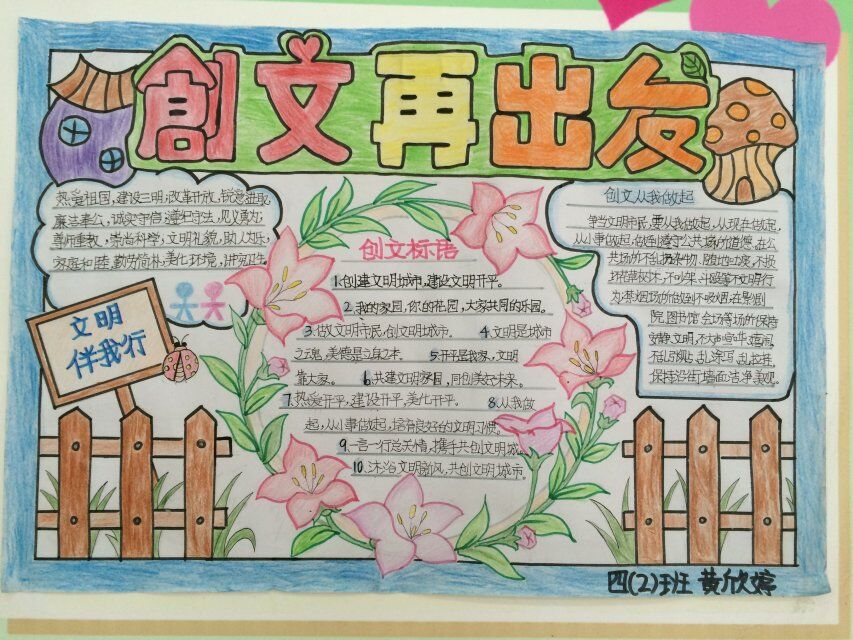 創文再出发
热爱祖国,建设三明;改革开放,锐意进取
廉洁奉公,诚实守信;遵纪守法,见义勇为;
尊师重教,崇尚科学;文明礼貌,助人为乐;
家庭和睦,勤劳简朴;美化环境,讲究卫生
文明
伴我行
创文标语
1.创建文明城市,建设文明开平。
2.我的家园,你的花园,大家共同的乐园。
3.做文明市民,创文明城市。 4.文明是城市
之魂,美德是立身之本。 5.开平是我家,文明
靠大家。 6.共建文明家园,同创美好未来。
7.热爱开平,建设开平,美化开平。 8.从我做
起,从小事做起,培养良好的文明习惯。
9.一言一行总关情,携手共创文明城。
10.沐浴文明新风,共创文明城市。
创文从我做起
争当文明市民,要从我做起,从现在做起,
从小事做起,做到遵守公共场所道德,在公
共场所不乱扔杂物、随地吐痰,不损
坏花草树木,不吵架、斗殴等不文明行
为;禁烟场所做到不吸烟;在影剧
院、图书馆、会场等场所保持
安静、文明,不大声喧哗、嬉闹,
不乱张贴、乱涂写、乱拉挂,
保持沿街墙面洁净美观。
四(2)班 黄欣婷